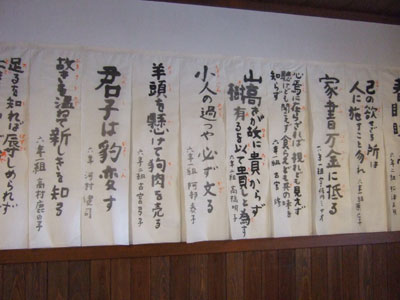 己の欲せざる所は
人に施すこと勿れ
家書万金に抵る
六年一組
心焉に在らざれば視れども見えず
聴けども聞えず食らえども其の味を
知らず
六年一組 古宮 修
山高きが故に貴からず
樹有るを以て貴しと為す
六年二組 高橋明子
小人の過つや必ず文る
六年一組 阿部春子
羊頭を懸けて狗肉を売る
六年二組 古宮
君子は豹変す
六年 河村健司
故きを温て新しきを知る
六年一組 高村
足るを知れば辱しめられず